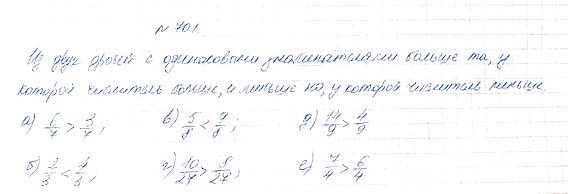 № 701.
Из двух дробей с одинаковыми знаменателями больше та, у
которой числитель больше, и меньше на, у которой числитель меньше
а) 6/7 > 3/7; в) 5/8 < 9/8; д) 14/9 > 4/9
б) 2/3 < 4/3; г) 10/27 > 8/27; е) 7/4 > 6/4